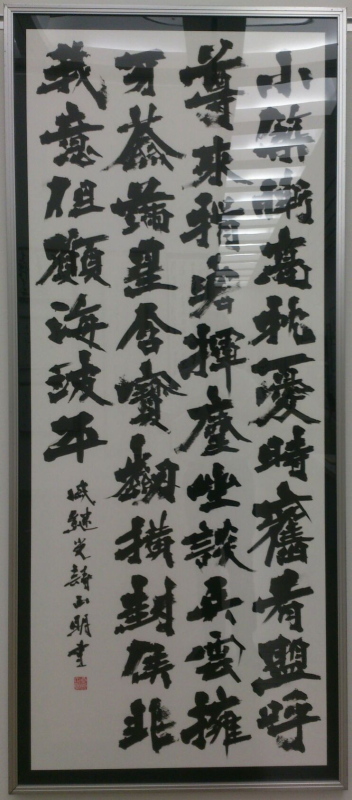 小築漸高枕憂時舊有盟呼
尊來揖客揮麈坐談兵雲擁
牙籤滿星含寶劍橫封侯非
我意但願海波平
戚継光詩山明書